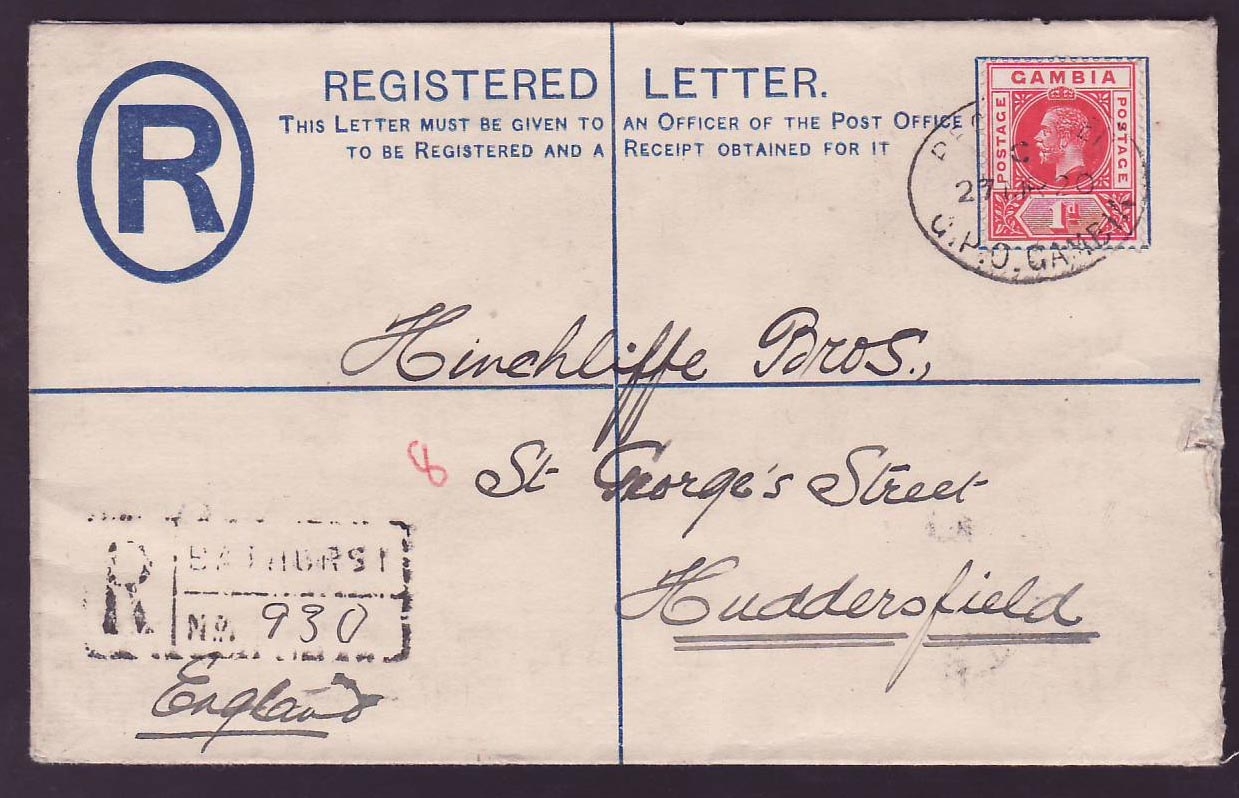 R
REGISTERED LETTER.
THIS LETTER MUST BE GIVEN TO AN OFFICER OF THE POST OFFICE
TO BE REGISTERED AND A RECEIPT OBTAINED FOR IT
GAMBIA
POSTAGE
POSTAGE
1d
G.P.O. GAMBIA
Hinchliffe Bros.,
8
St George's Street
Huddersfield
R
BATHURST
No. 930
England